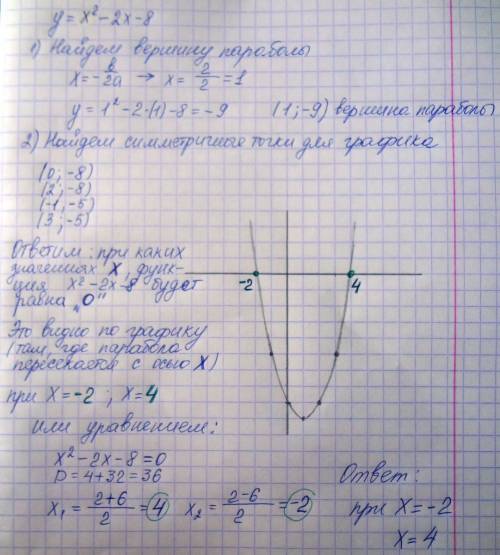 y = x² - 2x - 8
1) Найдем вершину параболы
x = - b/2a → x = 2/2 = 1
y = 1² - 2·(1) - 8 = -9 (1; -9) вершина параболы
2) Найдем симметричные точки для графика
(0; -8)
(2; -8)
(-1; -5)
(3; -5)
Ответим: при каких
значениях X, функ-
ция x² - 2x - 8 будет
равна „0"
Это видно по графику
(там, где парабола
пересекается с осью X)
при X = -2 ; X = 4
-2 4
или уравнением:
x² - 2x - 8 = 0
D = 4 + 32 = 36
x₁ = 2+6/2 = 4 x₂ = 2-6/2 = -2
Ответ:
при X = -2
X = 4